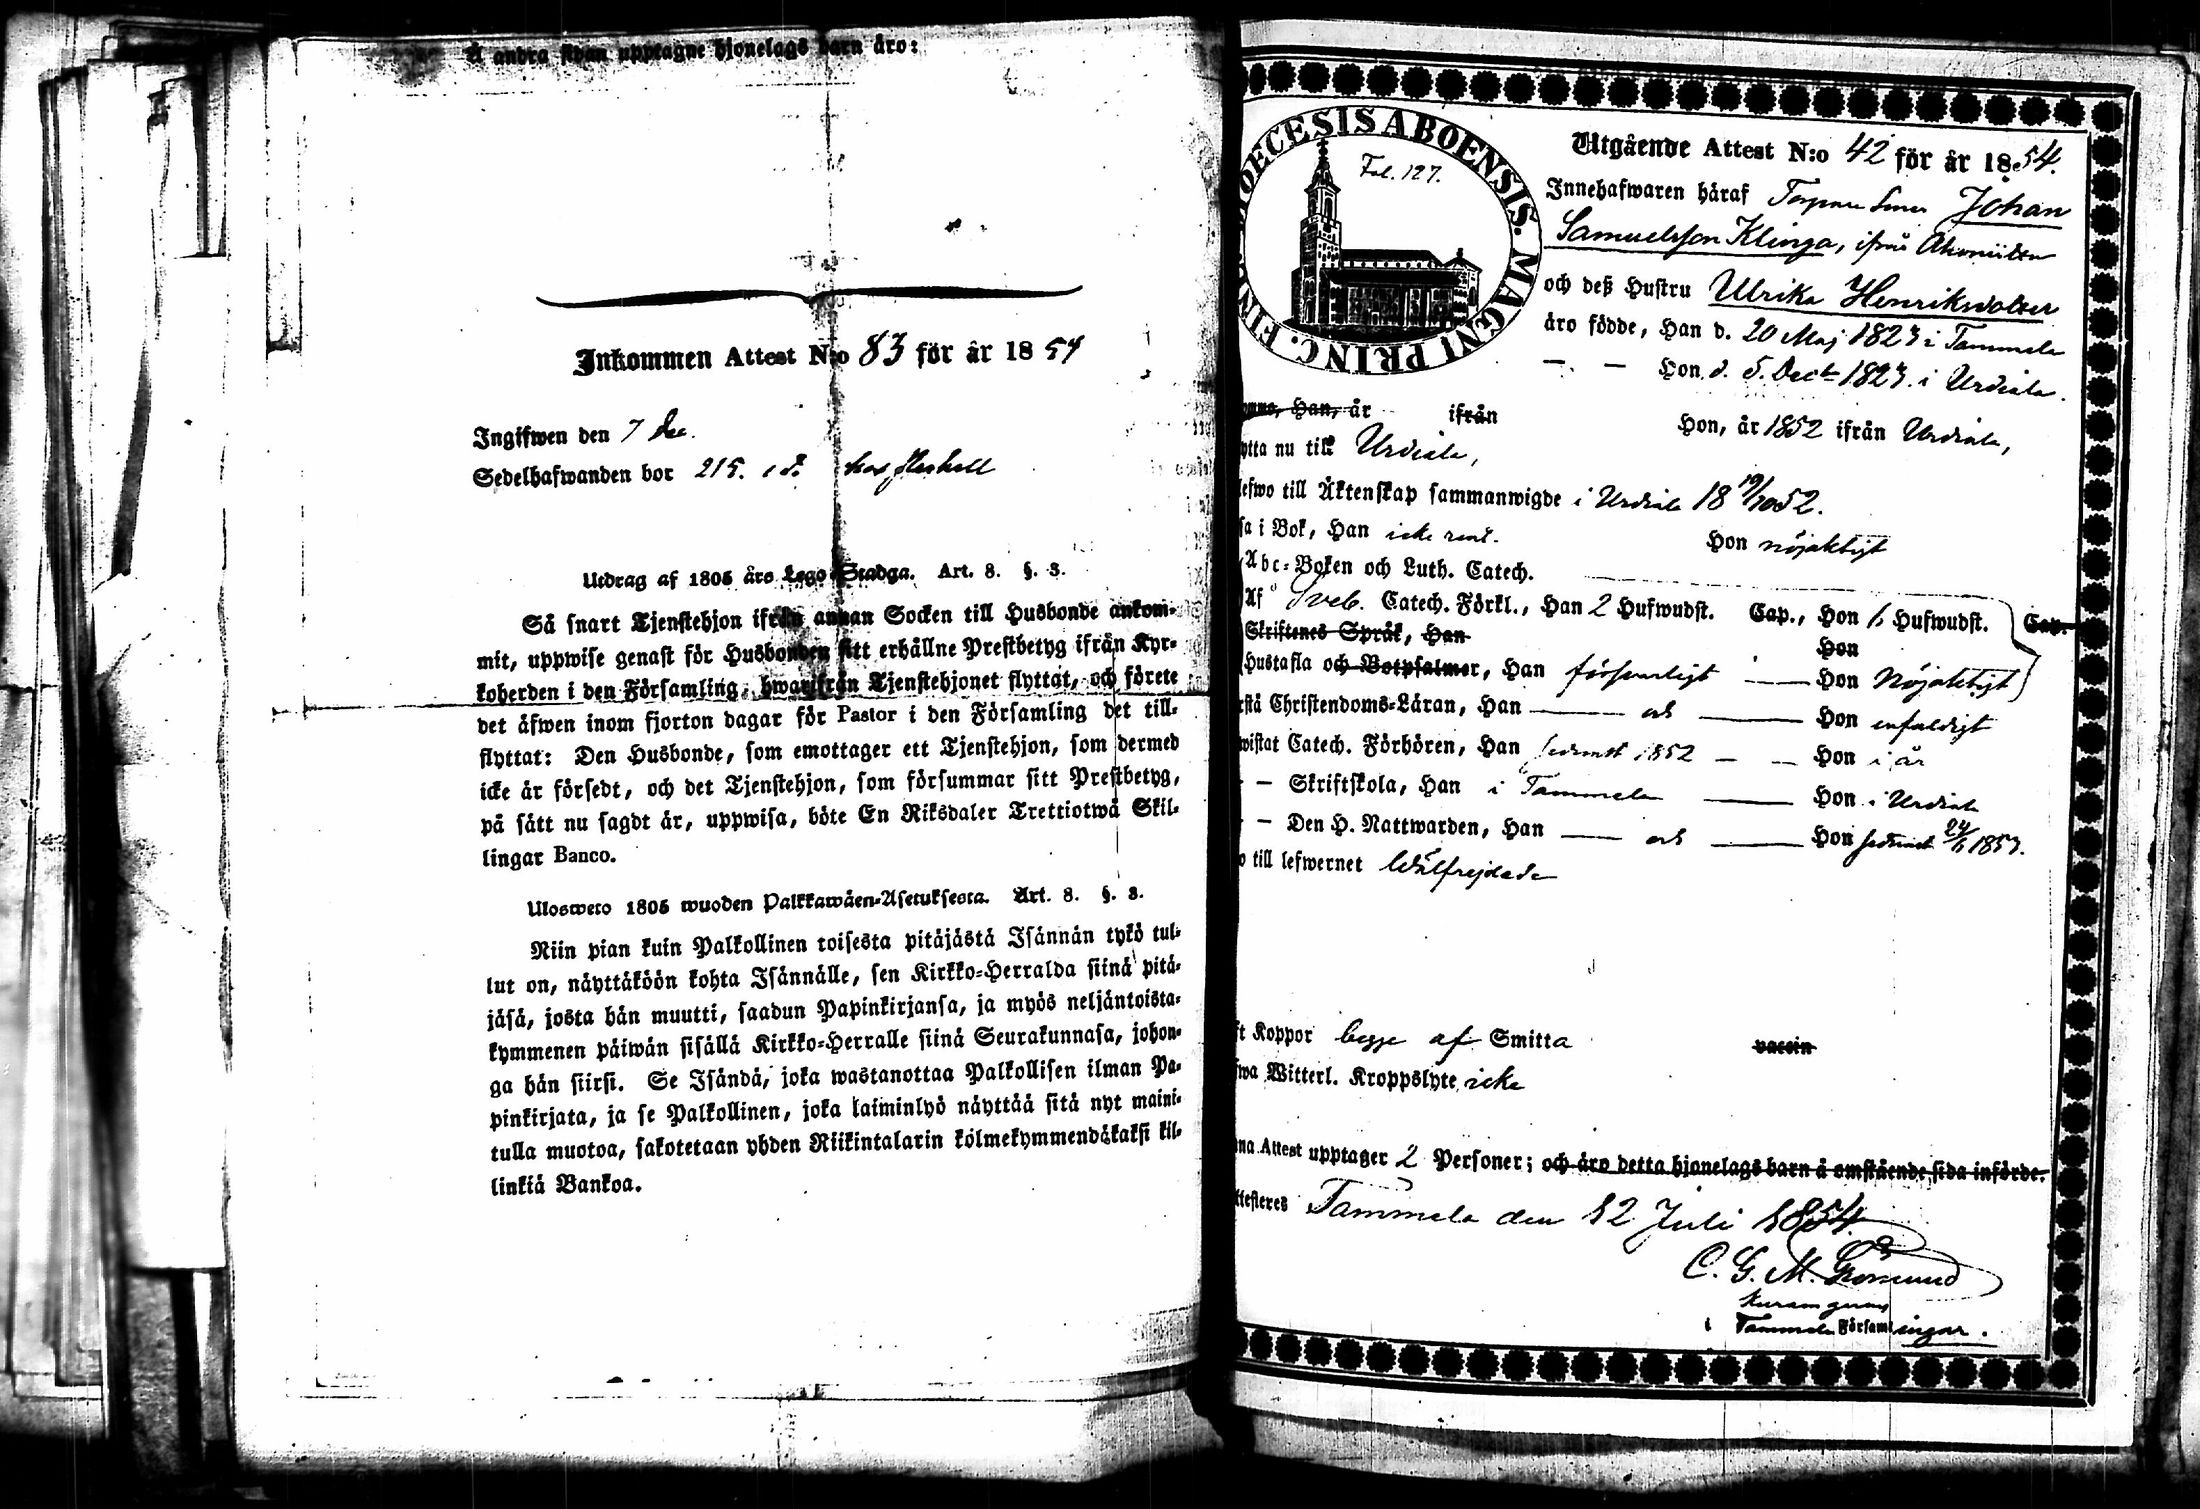 Å andra sidan upptagne hjonelags barn äro:
Inkommen Attest N:o 83 för år 1854
Ingifwen den 7 Dec.
Sedelhafwanden bor 215.
Utdrag af 1805 års Lego-Stadga. Art. 8. §. 3.
Så snart Tjenstehjon ifrån annan Socken till Husbonde ankom-
mit, uppwise genast för Husbonden sitt erhållne Prestbetyg ifrån Kyr-
koherden i den Församling, hwarifrån Tjenstehjonet flyttat, och förete
det äfwen inom fjorton dagar för Pastor i den Församling det till-
flyttat: Den Husbonde, som emottager ett Tjenstehjon, som dermed
icke är försedt, och det Tjenstehjon, som försummar sitt Prestbetyg,
på sätt nu sagdt är, uppwisa, böte En Riksdaler Trettiotwå Skil-
lingar Banco.
Ulosweto 1805 wuoden Palkkawäen-Asetuksesta. Art. 8. §. 3.
Niin pian kuin Palkollinen toisesta pitäjästä Isännän tykö tul-
lut on, näyttäköön kohta Isännälle, sen Kirkko-Herralda siinä pitä-
jäsä, josta hän muutti, saadun Papinkirjansa, ja myös neljäntoista-
kymmenen päiwän sisällä Kirkko-Herralle siinä Seurakunnasa, johon-
ga hän siirsi. Se Isändä, joka wastanottaa Palkollisen ilman Pa-
pinkirjata, ja se Palkollinen, joka laiminlyö näyttää sitä nyt maini-
tulla muotoa, sakotetaan yhden Riikintalarin kolmekymmendäkaksi kil-
linkiä Bankoa.
DIOECESIS ABOENSIS. MAGNI PRINC. FINL.
Fol. 127.
Utgående Attest N:o 42 för år 1854.
Innehafwaren häraf Johan
Samuelsson Klinga, ifrån
och deß Hustru Ulrika Henriksdotter
äro födde, Han d. 20 Maj 1823 i Tammela
— — Hon d. 5. Dec. 1823. i Urdiala.
Han, år ifrån Hon, år 1852 ifrån Urdiala,
ytta nu till Urdiala,
lefwo till Äktenskap sammanwigde i Urdiala 18 19/10 52.
sa i Bok, Han icke rent. Hon nöjaktigt
Abc-Boken och Luth. Catech.
Af Sveb. Catech. Förkl., Han 2 Hufwudst. Cap., Hon 6 Hufwudst. Cap.
Skriftenes Språk, Han Hon
Hustafla och Botpsalmer, Han försvarligt — Hon Nöjaktigt
rstå Christendoms-Läran, Han — och — Hon enfaldigt
wistat Catech. Förhören, Han sednast 1852 — — Hon i år
— — Skriftskola, Han i Tammela — Hon i Urdiala
— — Den H. Nattwarden, Han — och — Hon sednast 24/6 1853.
o till lefwernet Wälfrejdade
ft Koppor begge af Smitta vaccin
fwa Witterl. Kroppslyte icke
na Attest upptager 2 Personer; och äro detta hjonelags barn å omstående sida införde.
ttesteres Tammela den 12 Juli 1854.
C. G. M.
i Tammela Församlingar.